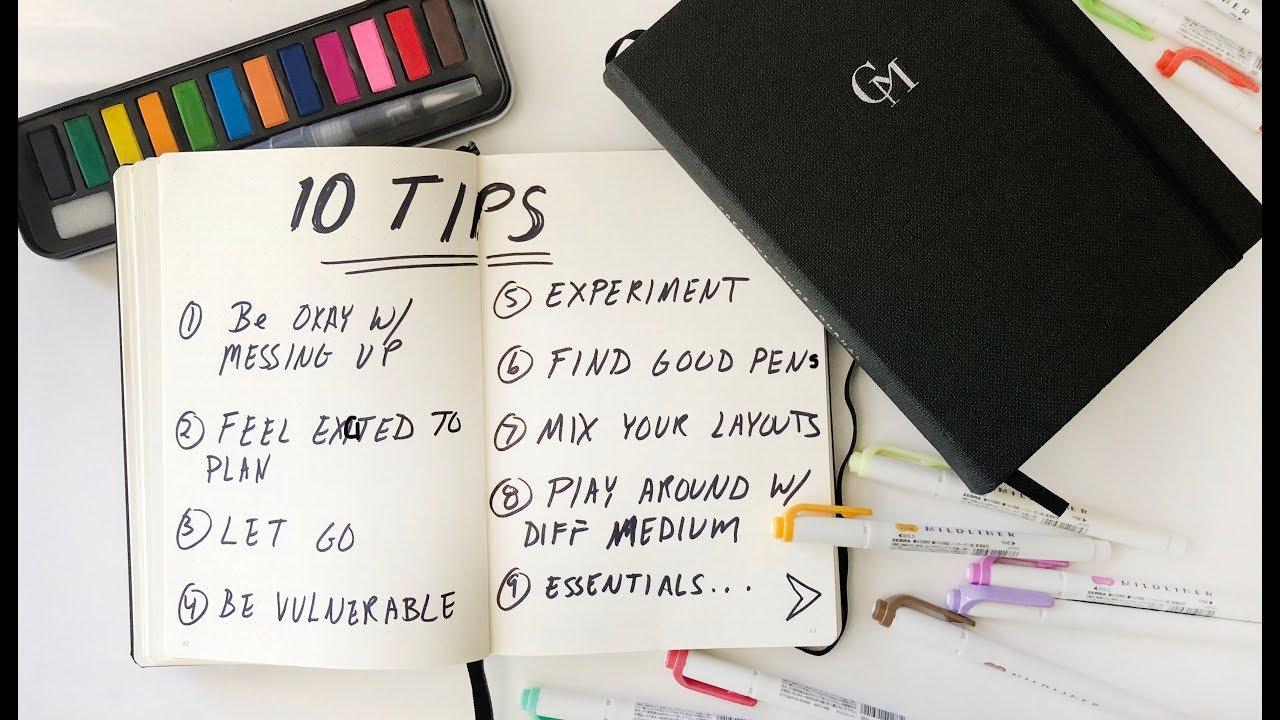 10 TIPS
① Be OKAY W/
MESSING UP
② FEEL EXCITED TO
PLAN
③ LET GO
④ BE VULNERABLE
62
⑤ EXPERIMENT
⑥ FIND GOOD PENS
⑦ MIX YOUR LAYOUTS
⑧ PLAY AROUND W/
DIFF MEDIUM
⑨ ESSENTIALS...
63
GM
MILDLINER
ZEBRA
MILDLINER
MILDLINER